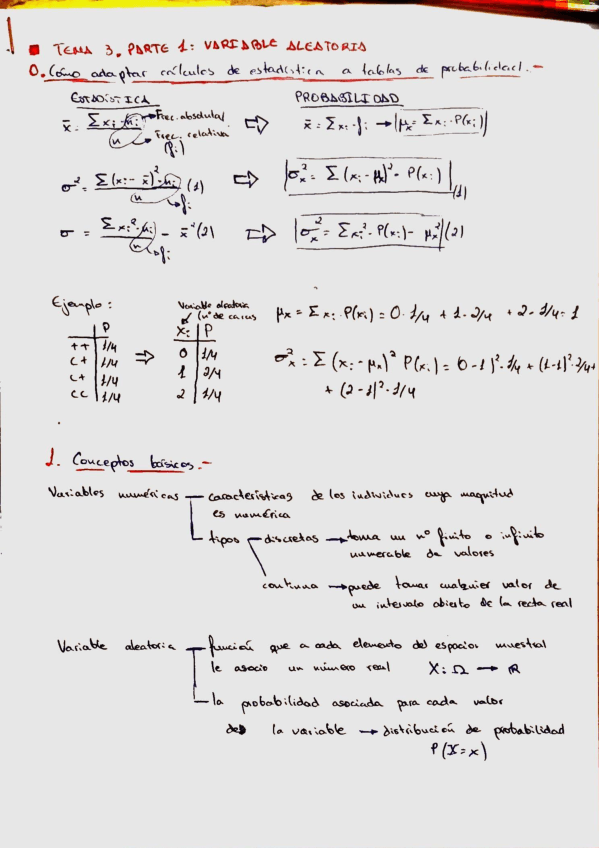 TEMA 3. PARTE 1: VARIABLE ALEATORIA
0. Cómo adaptar cálculos de estadística a tablas de probabilidad.-
ESTADÍSTICA PROBABILIDAD
x̄ = Σxi·ni / n → Frec. absoluta / Frec. relativa (fi) ⇒ x̄ = Σxi·fi → |μx = Σxi·P(xi)|
σ² = Σ(xi - x̄)²·ni / n (1) → fi ⇒ |σx² = Σ(xi - μx)²·P(xi)| (1)
σ = Σxi²·ni / n - x̄² (2) → fi ⇒ |σx² = Σxi²·P(xi) - μx²| (2)
Ejemplo:
P
++ 1/4
C+ 1/4
C+ 1/4
CC 1/4
⇒
Variable aleatoria
(nº de caras
xi P
0 1/4
1 2/4
2 1/4
μx = Σxi·P(xi) = 0·1/4 + 1·2/4 + 2·1/4 = 1
σx² = Σ(xi - μx)² P(xi) = (0-1)²·1/4 + (1-1)²·2/4 +
+ (2-1)²·1/4
1. Conceptos básicos.-
Variables numéricas — características de los individuos cuya magnitud
es numérica
tipos — discretas → toma un nº finito o infinito
numerable de valores
continua → puede tomar cualquier valor de
un intervalo abierto de la recta real
Variable aleatoria — función que a cada elemento del espacios muestral
le asocio un número real X: Ω → ℝ
la probabilidad asociada para cada valor
de la variable → distribución de probabilidad
P(X=x)